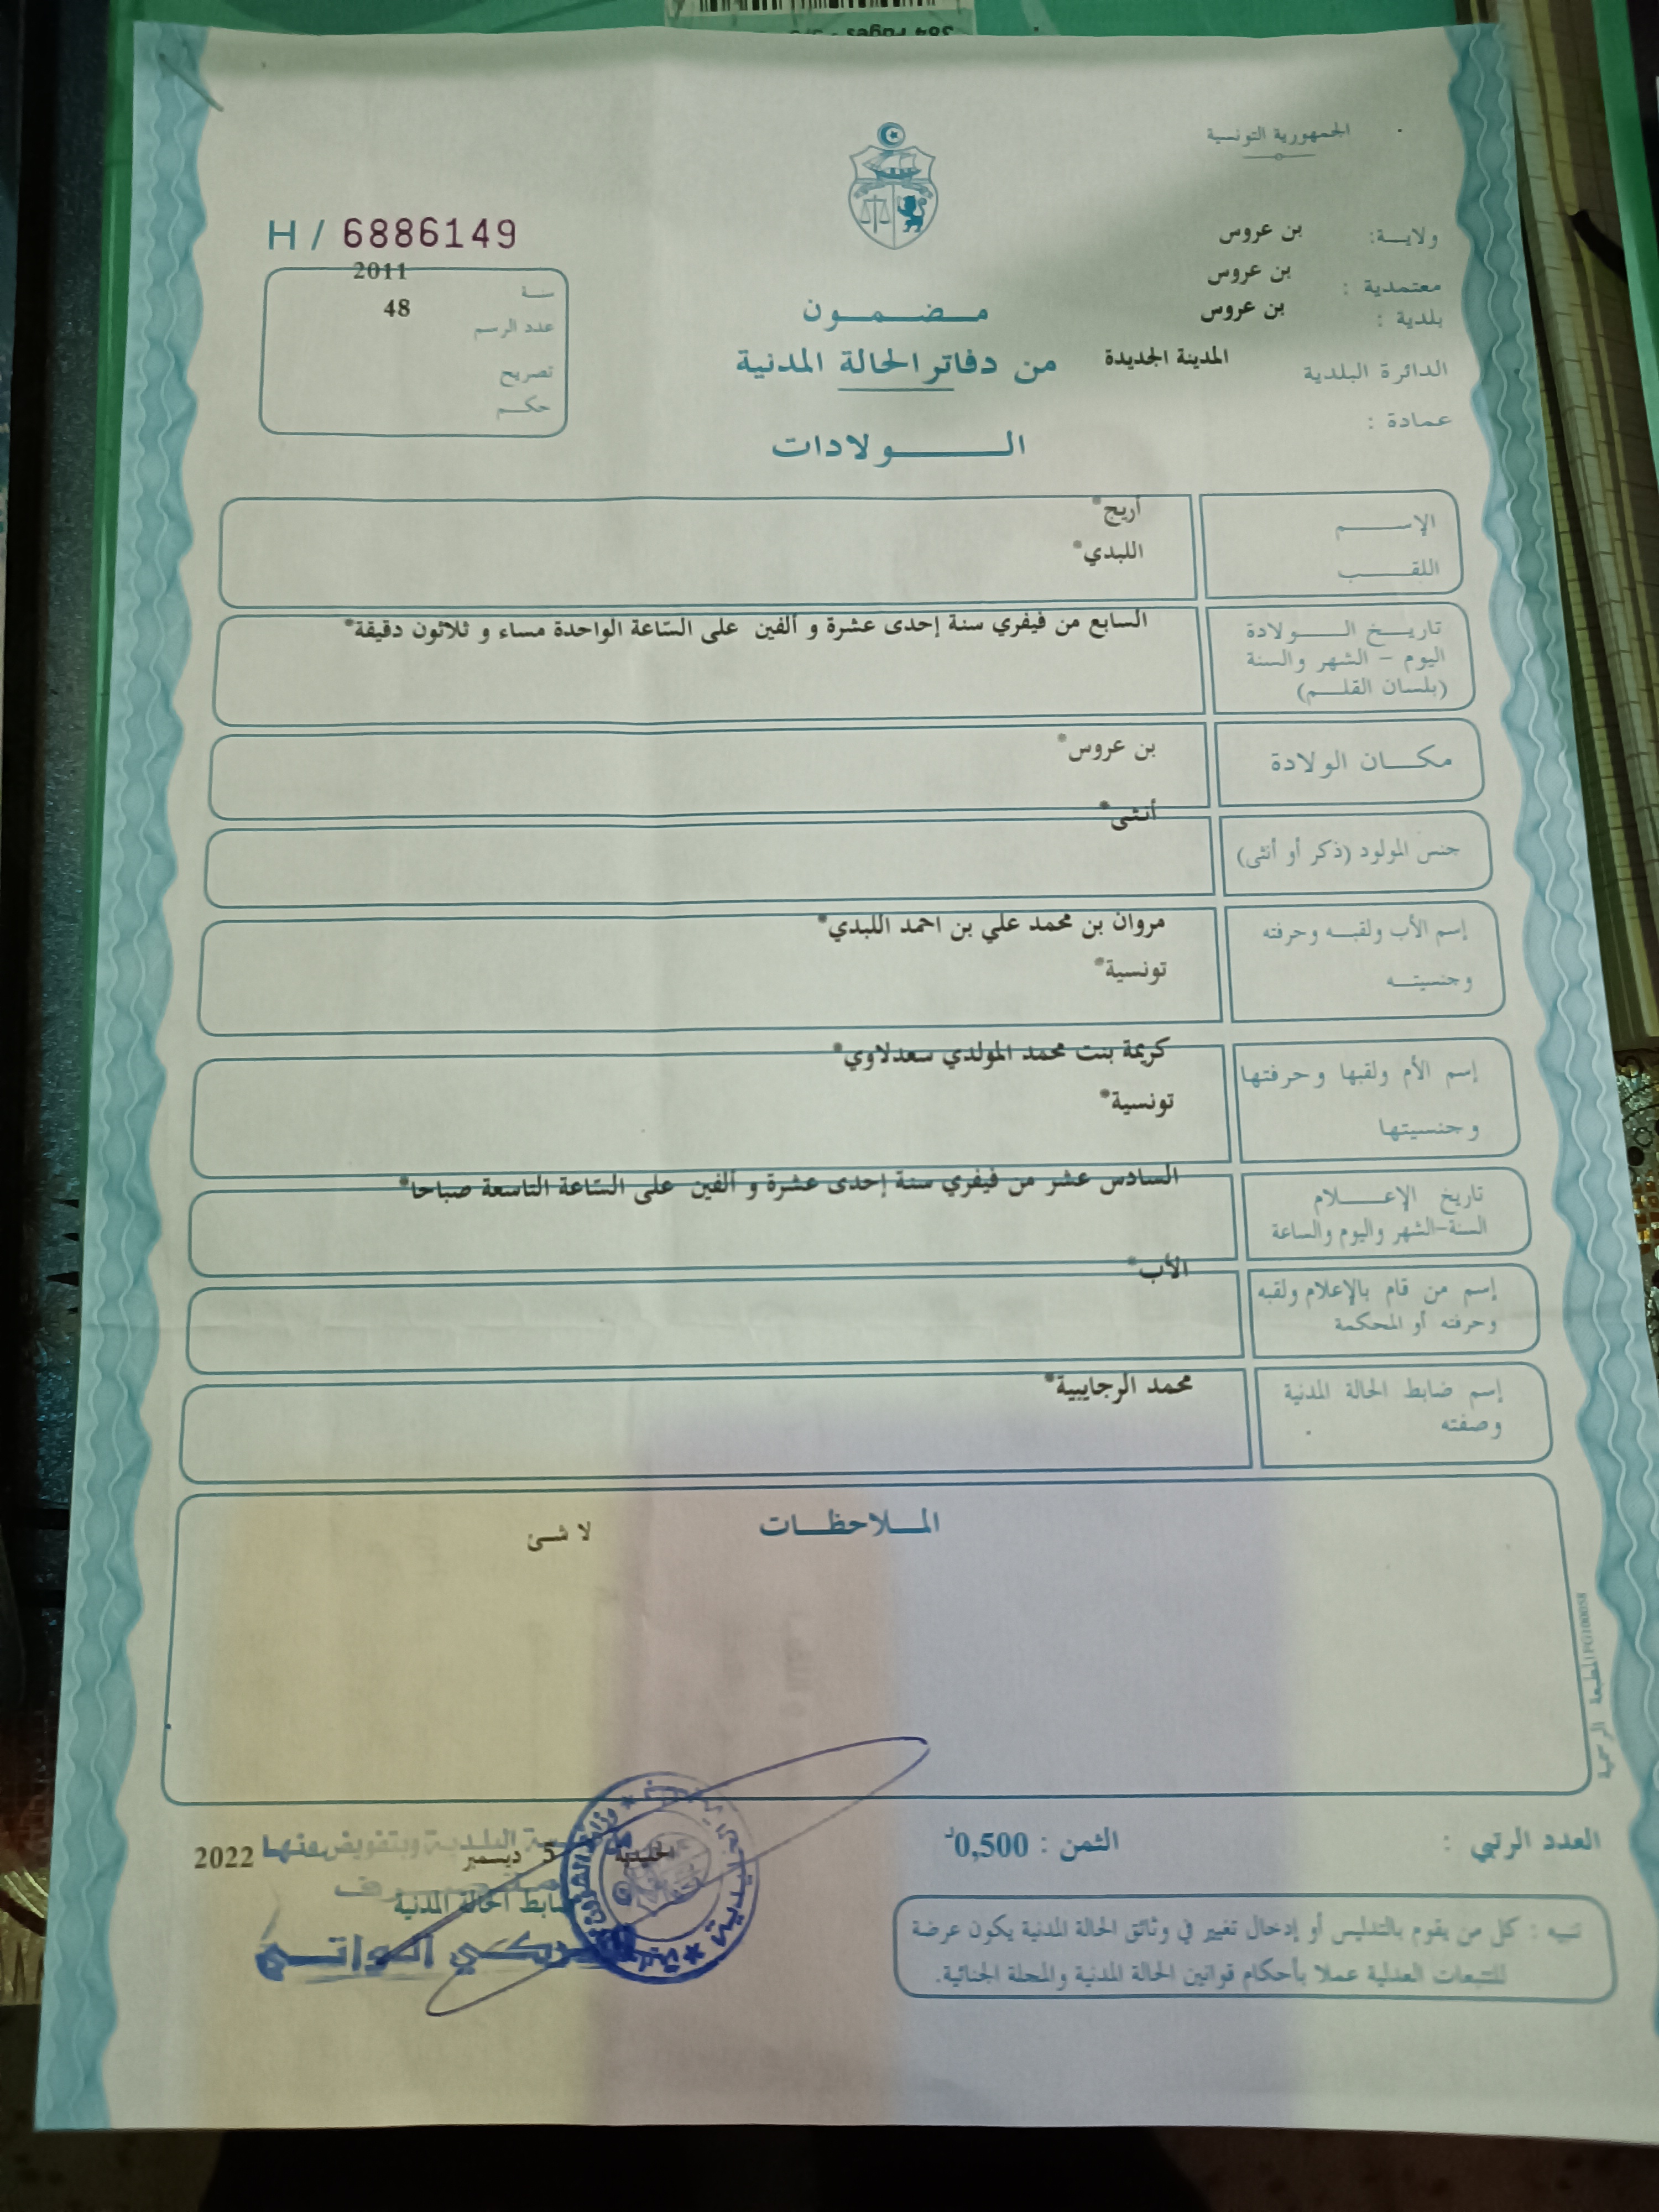 384 Pages
الجمهورية التونسية
H / 6886149
ولايـــة: بن عروس
معتمدية : بن عروس
بلدية : بن عروس
الدائرة البلدية المدينة الجديدة
عمادة :
سنـة 2011
عدد الرسم 48
تصريح
حكـــم
مـــضـــمـــون
من دفاتر الحالة المدنية
الـــــــــولادات
الإســــــم أريج*
اللقــــــب اللبدي*
تاريـــخ الــــــولادة
اليوم – الشهر والسنة
(بلسان القلـــم)
السابع من فيفري سنة إحدى عشرة و ألفين على السّاعة الواحدة مساء و ثلاثون دقيقة*
مكـــان الولادة بن عروس*
جنس المولود (ذكر أو أنثى) أنثى*
إسم الأب ولقبـــه وحرفته مروان بن محمد علي بن احمد اللبدي*
وجنسيتـــه تونسية*
إسم الأم ولقبها وحرفتها كريمة بنت محمد المولدي سعدلاوي*
وجنسيتها تونسية*
تاريخ الإعـــــلام
السنة-الشهر واليوم والساعة
السادس عشر من فيفري سنة إحدى عشرة و ألفين على السّاعة التاسعة صباحا*
إسم من قام بالإعلام ولقبه
وحرفته أو المحكمة
الأب*
إسم ضابط الحالة المدنية
وصفته
محمد الرجايبية*
المـــلاحظـــات
لا شـئ
المطبعة الرسمية PG100058
العدد الرتبي :
الثمن : 0,500د
5 ديسمبر 2022
البلدية وبتفويض منها
ضابط الحالة المدنية
تنبيه : كل من يقوم بالتدليس أو إدخال تغيير في وثائق الحالة المدنية يكون عرضة
للتتبعات العدلية عملا بأحكام قوانين الحالة المدنية والمجلة الجنائية.